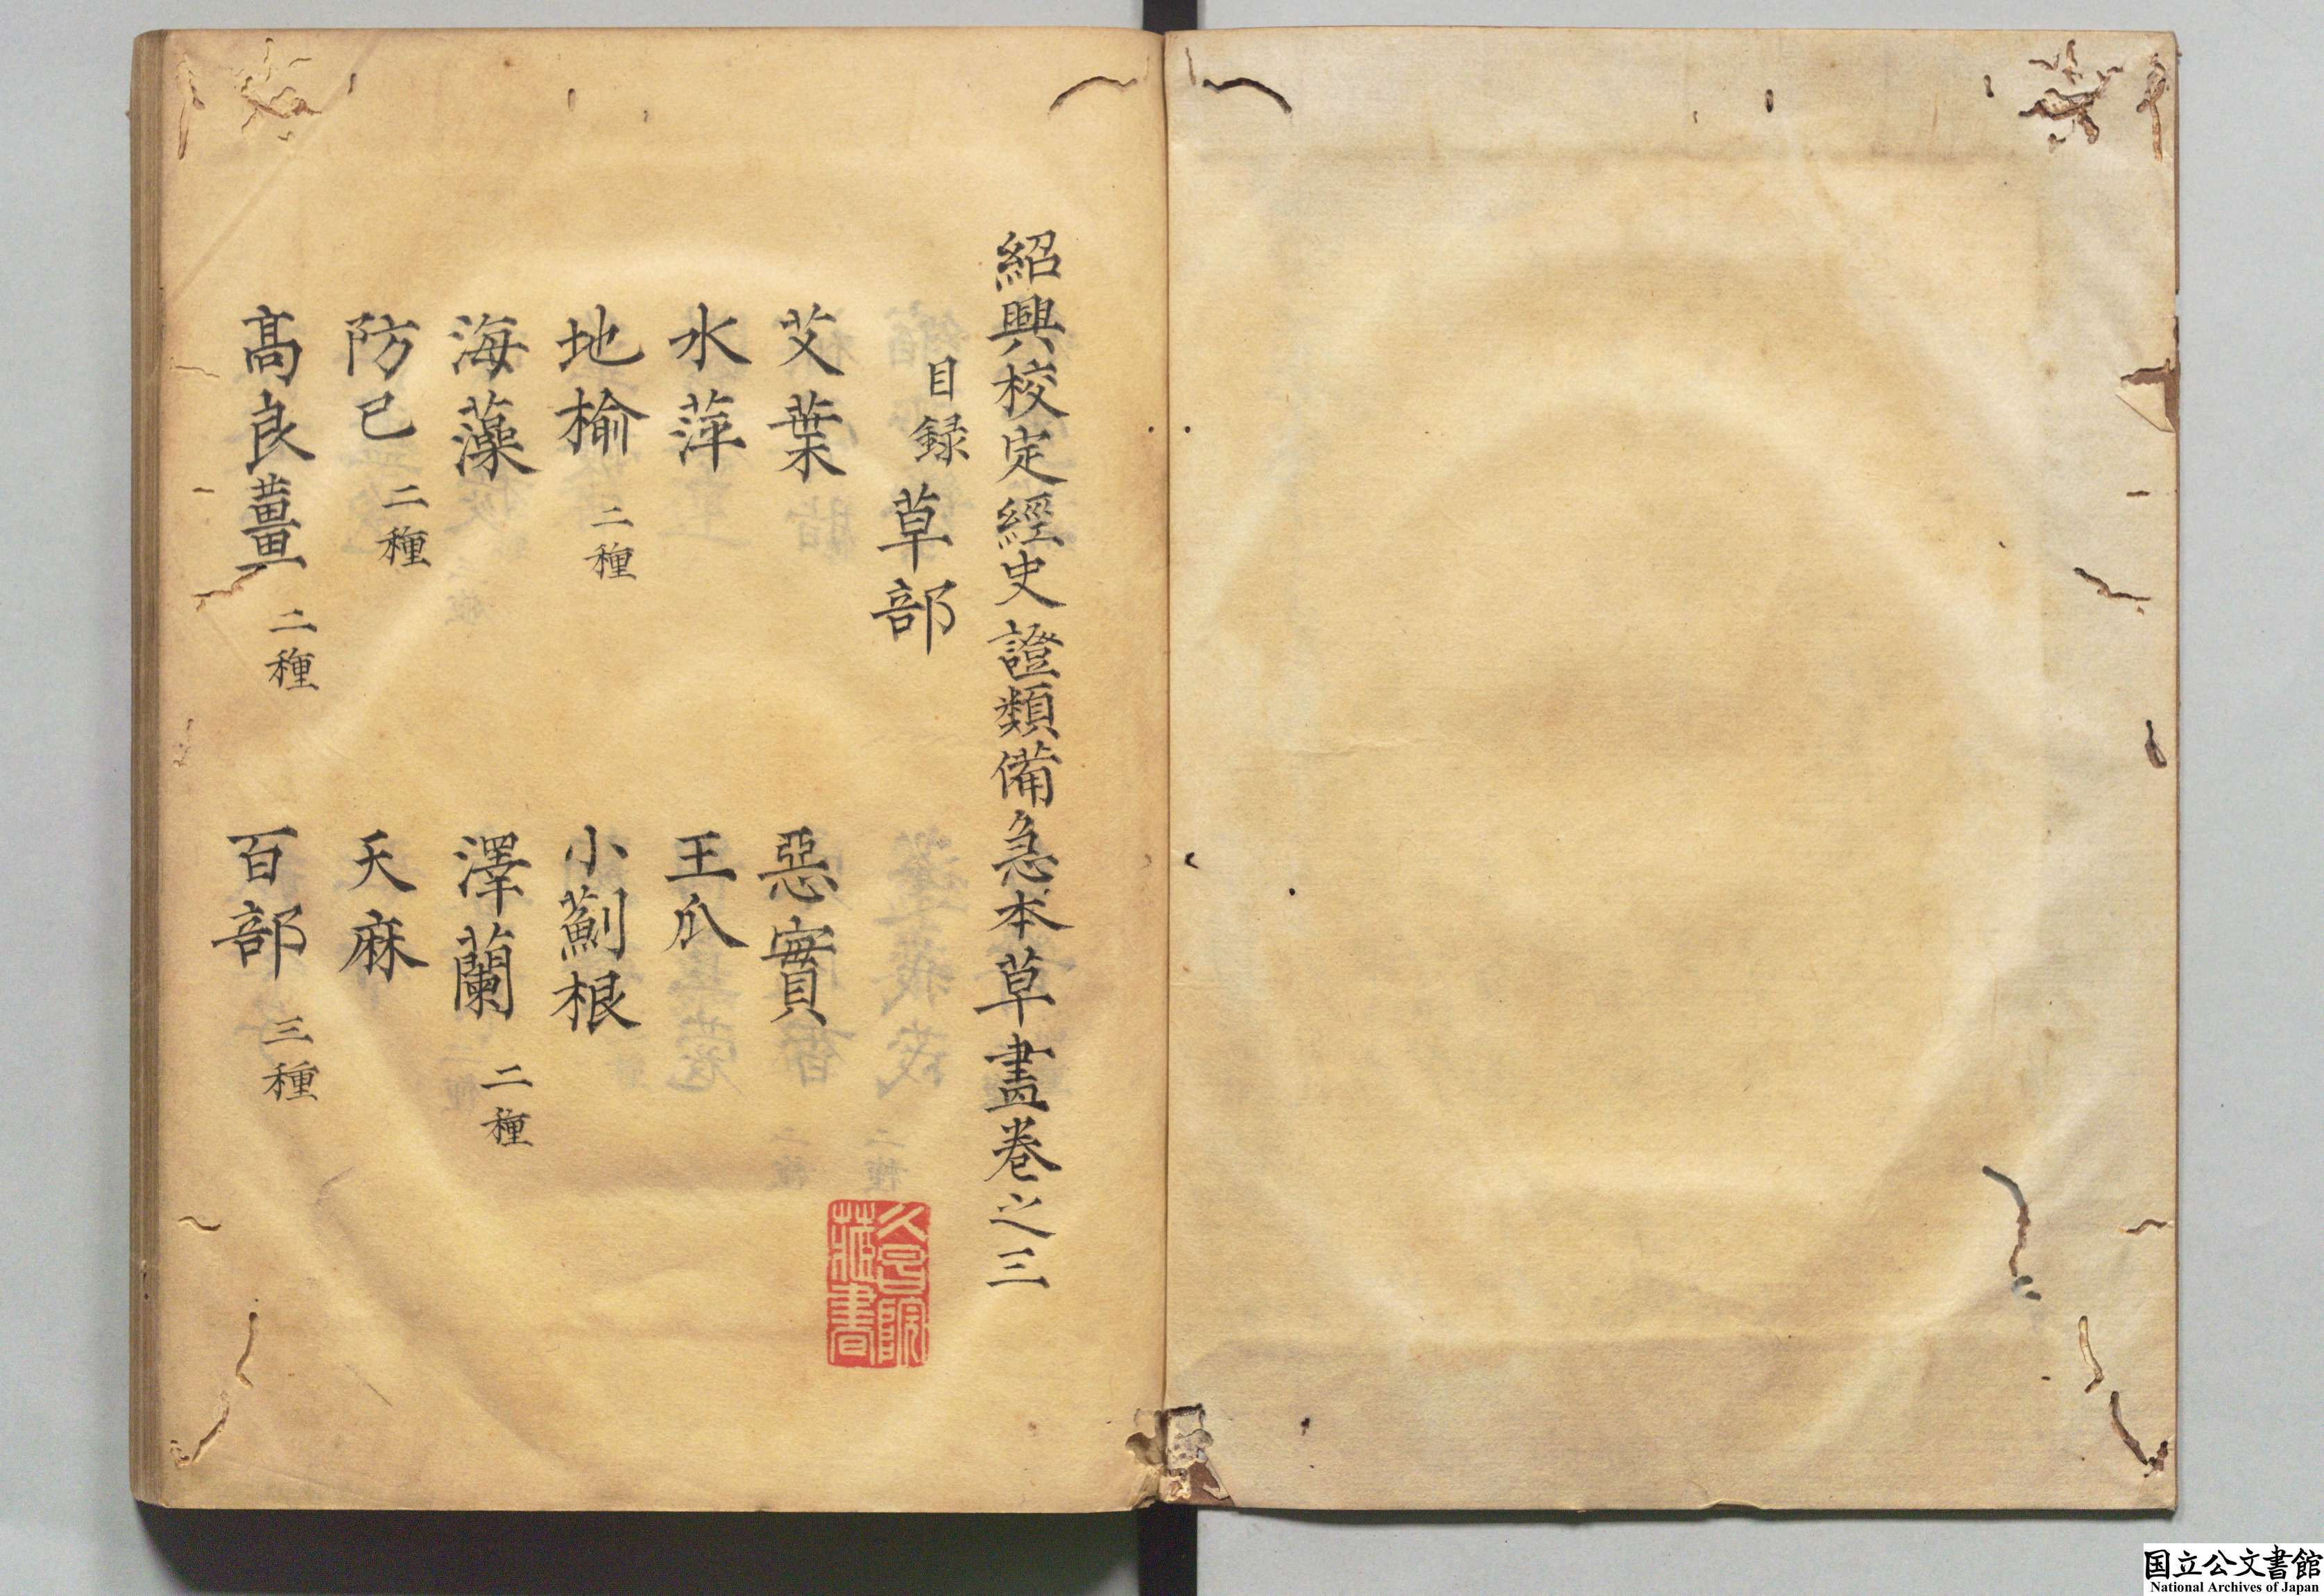 紹興校定經史證類備急本草畫卷之三
目録
草部
艾葉
惡實
水萍
王瓜
地榆 二種
小薊根
海藻
澤蘭 二種
防己 二種
天麻
高良薑 二種
百部 三種
藏書
国立公文書館
National Archives of Japan